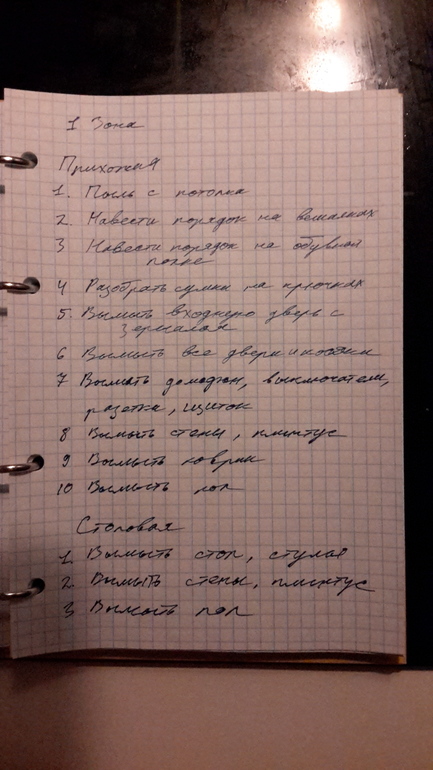 1 Зона
Прихожая
1. Пыль с потолка
2. Навести порядок на вешалках
3 Навести порядок на обувной
полке
4 Разобрать сумки на крючках
5. Вымыть входную дверь с
зеркалом
6 Вымыть все двери и косяки
7 Вымыть домофон, выключатели,
розетки, щиток
8 Вымыть стены, плинтус
9 Вымыть коврик
10 Вымыть пол
Столовая
1. Вымыть стол, стулья
2. Вымыть стены, плинтус
3 Вымыть пол